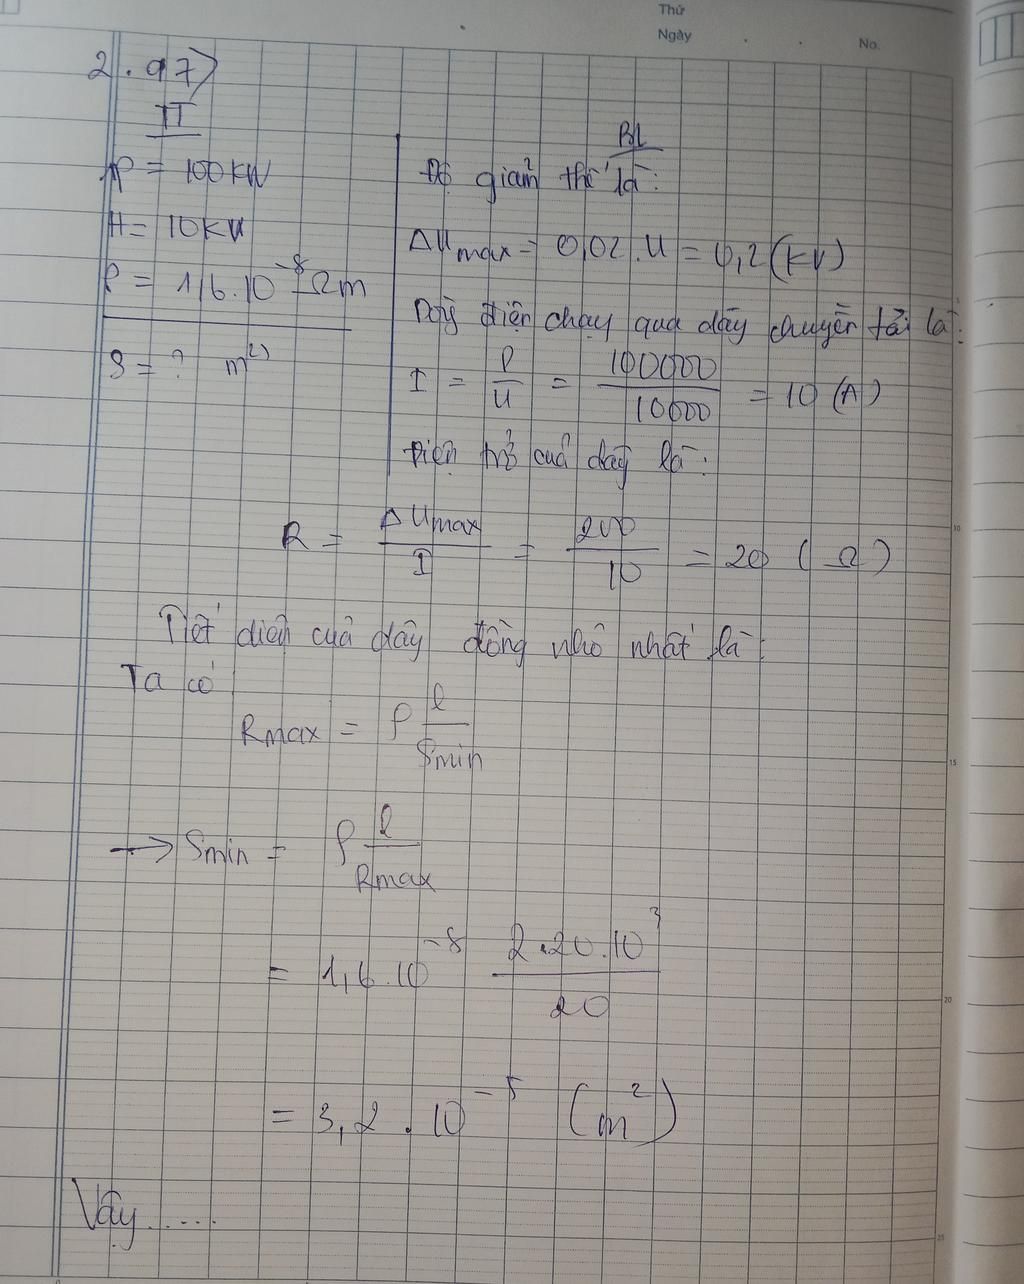 Thứ
Ngày . . No.
2.97)
TT
P = 100 KW
U = 10 KV
ρ = 1,6.10⁻⁸ Ωm
S = ? m²)
BL
Độ giảm thế là:
ΔUmax = 0,02.U = 0,2 (KV)
Dòng điện chạy qua dây chuyền tải là:
I = P/U = 100000/10000 = 10 (A)
Điện trở của dây là:
R = ΔUmax/I = 200/10 = 20 (Ω)
Tiết diện của dây đồng nhỏ nhất là:
Ta có
Rmax = ρ l/Smin
→ Smin = ρ l/Rmax
= 1,6.10⁻⁸ 2.20.10³/20
= 3,2.10⁻⁵ (m²)
Vậy.....
10
15
20
25